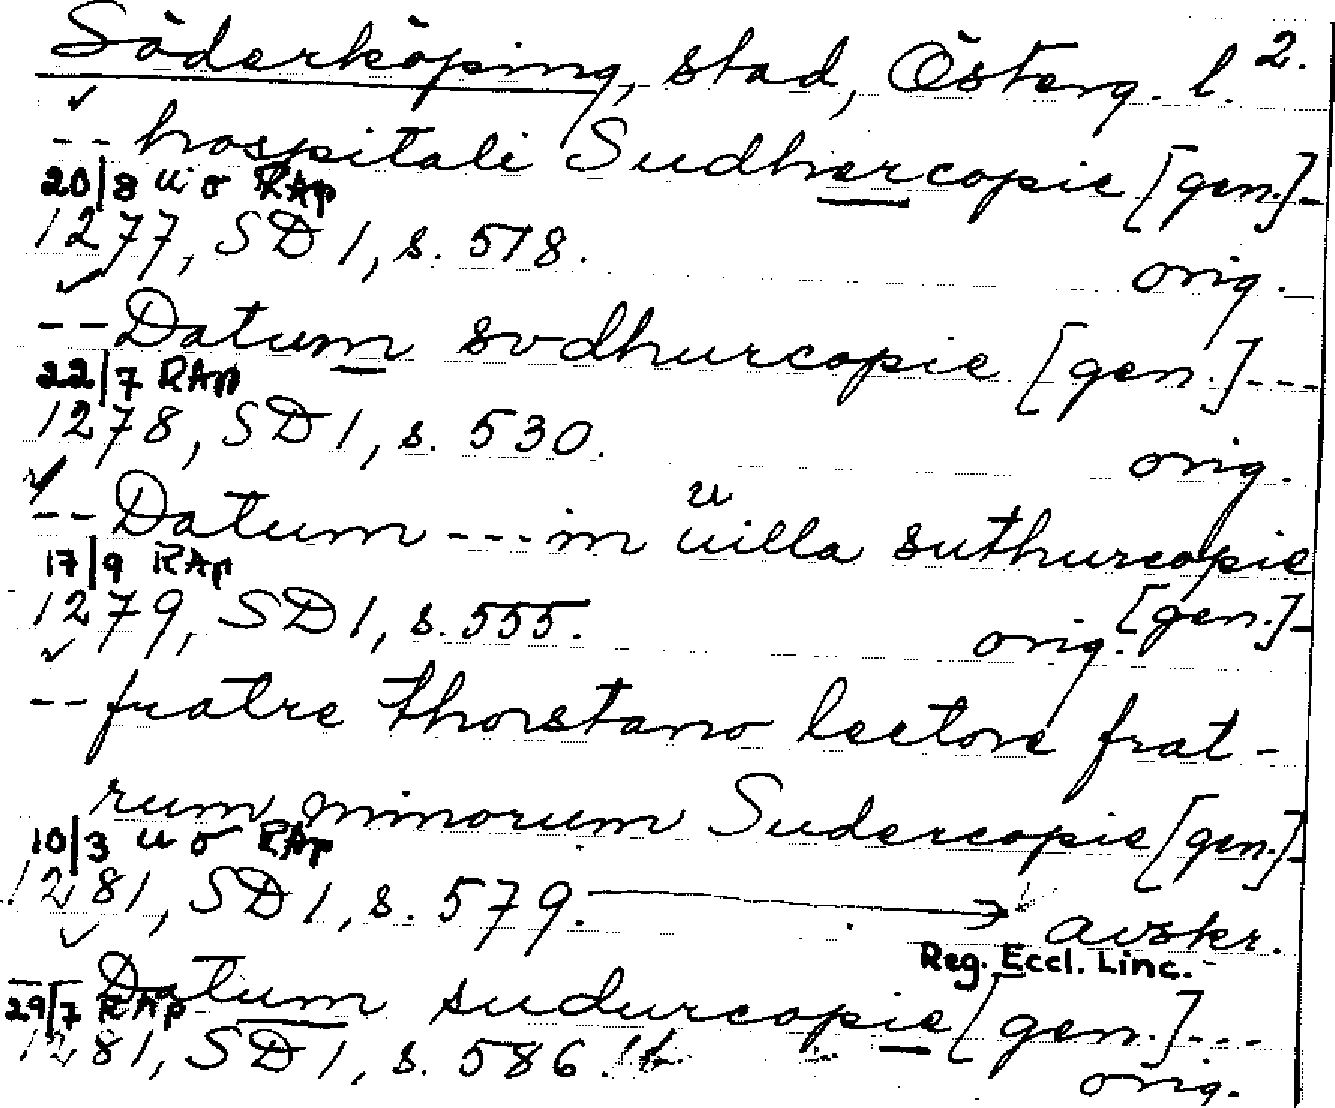 Söderköping, stad, Österg. l. 2.
-- hospitali Sudhercopie [gen.]-
20/8 u o RAp
1277, SD 1, s. 518. orig.
-- Datum svdhurcopie [gen.]---
22/7 RAp
1278, SD 1, s. 530. orig.
u
-- Datum --- in uilla suthurcopie
17/9 RAp
[gen.]-
1279, SD 1, s. 555. orig.
-- fratre thorstano lectore frat-
rum minorum Sudercopie [gen.]-
10/3 u o RAp
1281, SD 1, s. 579. → avskr.
Reg. Eccl. Linc.
-- Datum sudurcopie [gen.]---
29/7 RAp
1281, SD 1, s. 586. orig.